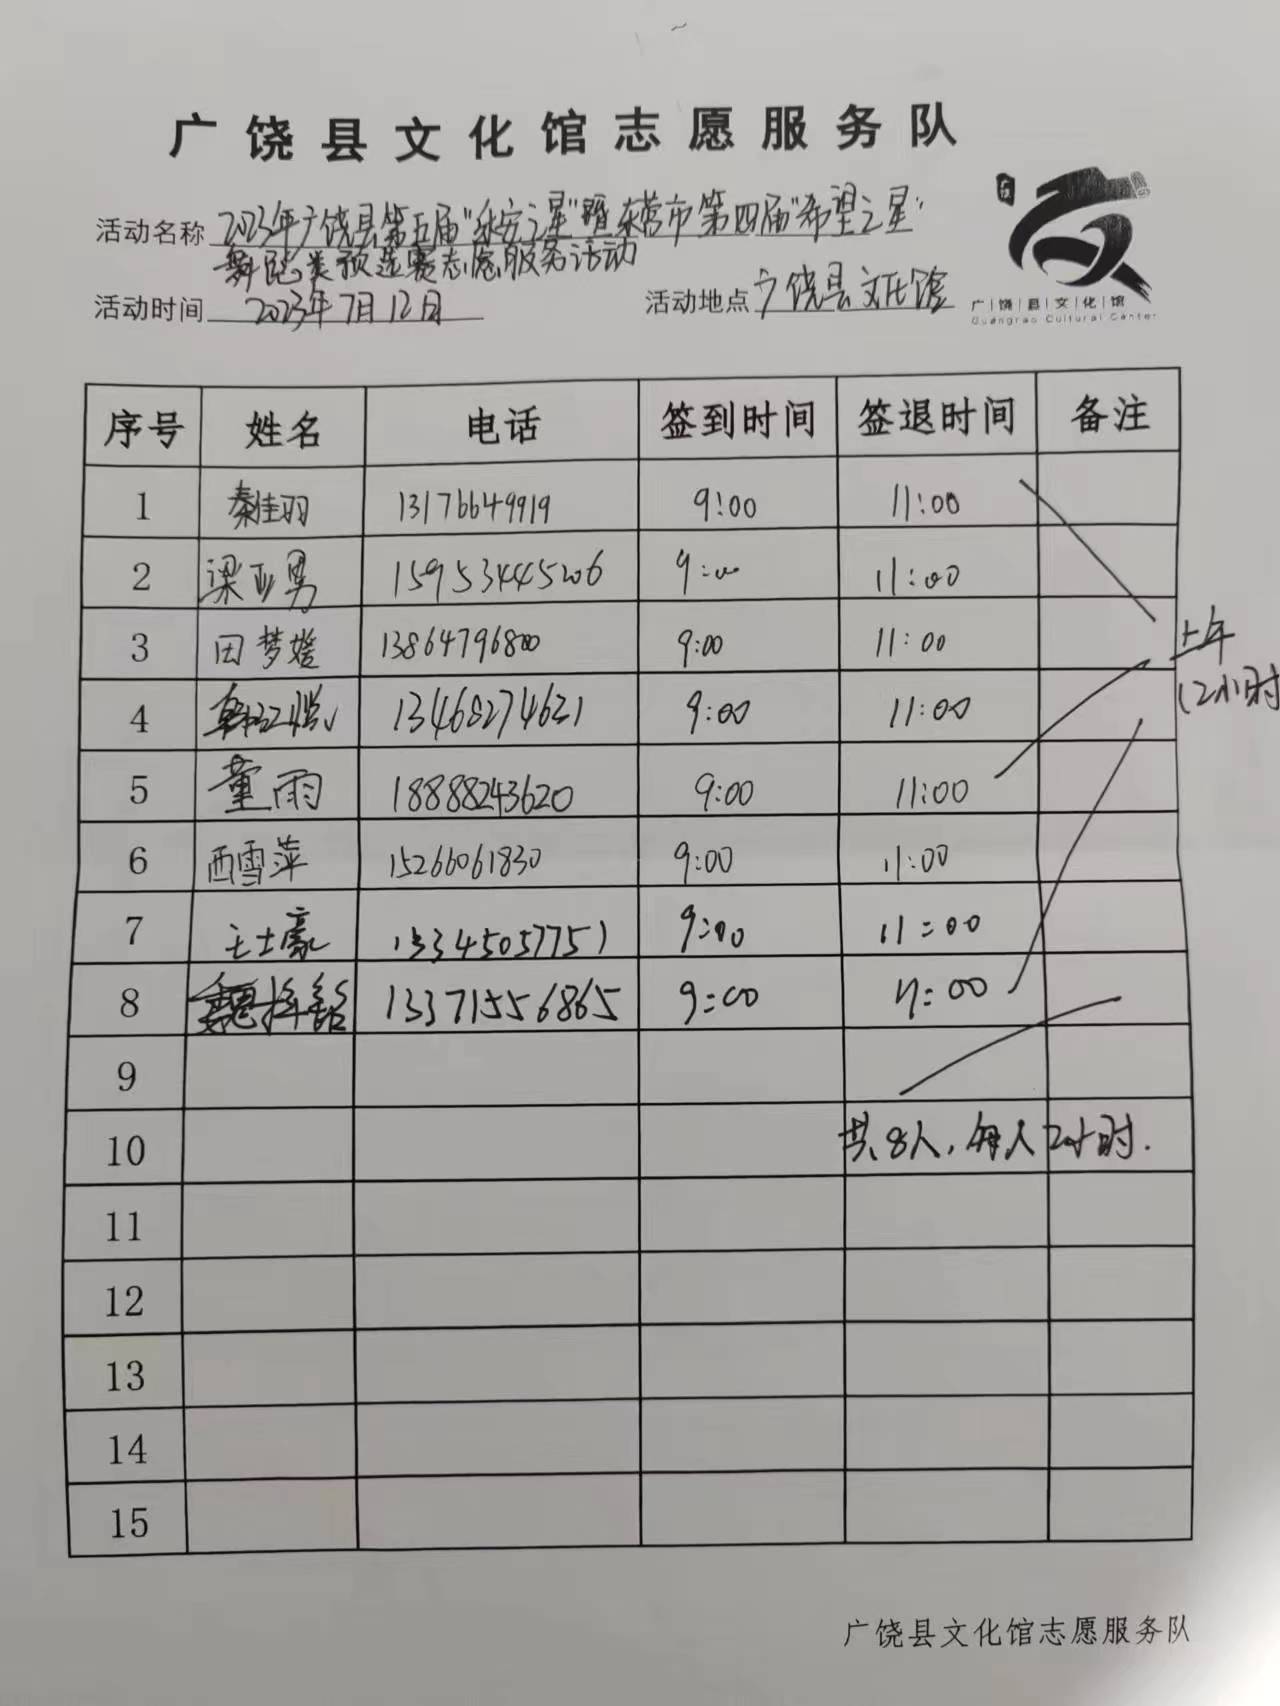 广饶县文化馆志愿服务队
活动名称 2023年广饶县第五届"乐安之星"暨东营市第四届"希望之星"
舞蹈类预选赛志愿服务活动
活动时间 2023年7月12日 活动地点 广饶县文化馆
广饶县文化馆
Guangrao Cultural Center
序号 姓名 电话 签到时间 签退时间 备注
1 秦佳羽 13176649919 9:00 11:00
2 梁亚男 15953445206 9:00 11:00
3 田梦婕 13864796800 9:00 11:00
上午
4 13468274621 9:00 11:00
(2小时
5 董雨 18888243620 9:00 11:00
6 西雪萍 15266061830 9:00 11:00
7 王士豪 13345057751 9:00 11:00
8 魏 13371556865 9:00 11:00
9
10 共8人,每人2小时.
11
12
13
14
15
广饶县文化馆志愿服务队